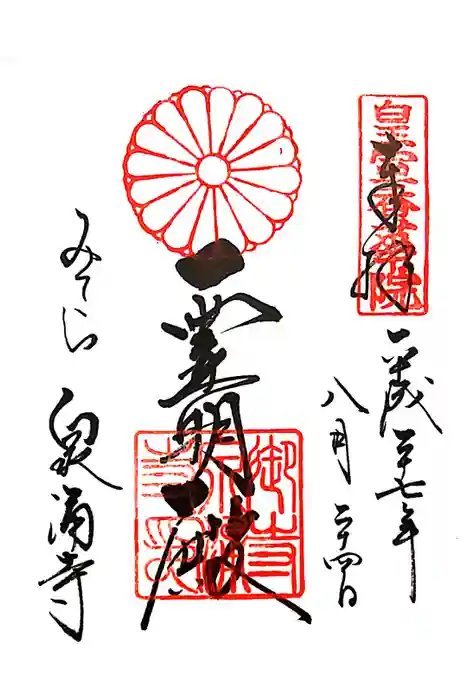 皇室香華院
奉拝
平成二十七年
八月二十四日
霊明殿
御寺
みてら
泉涌寺